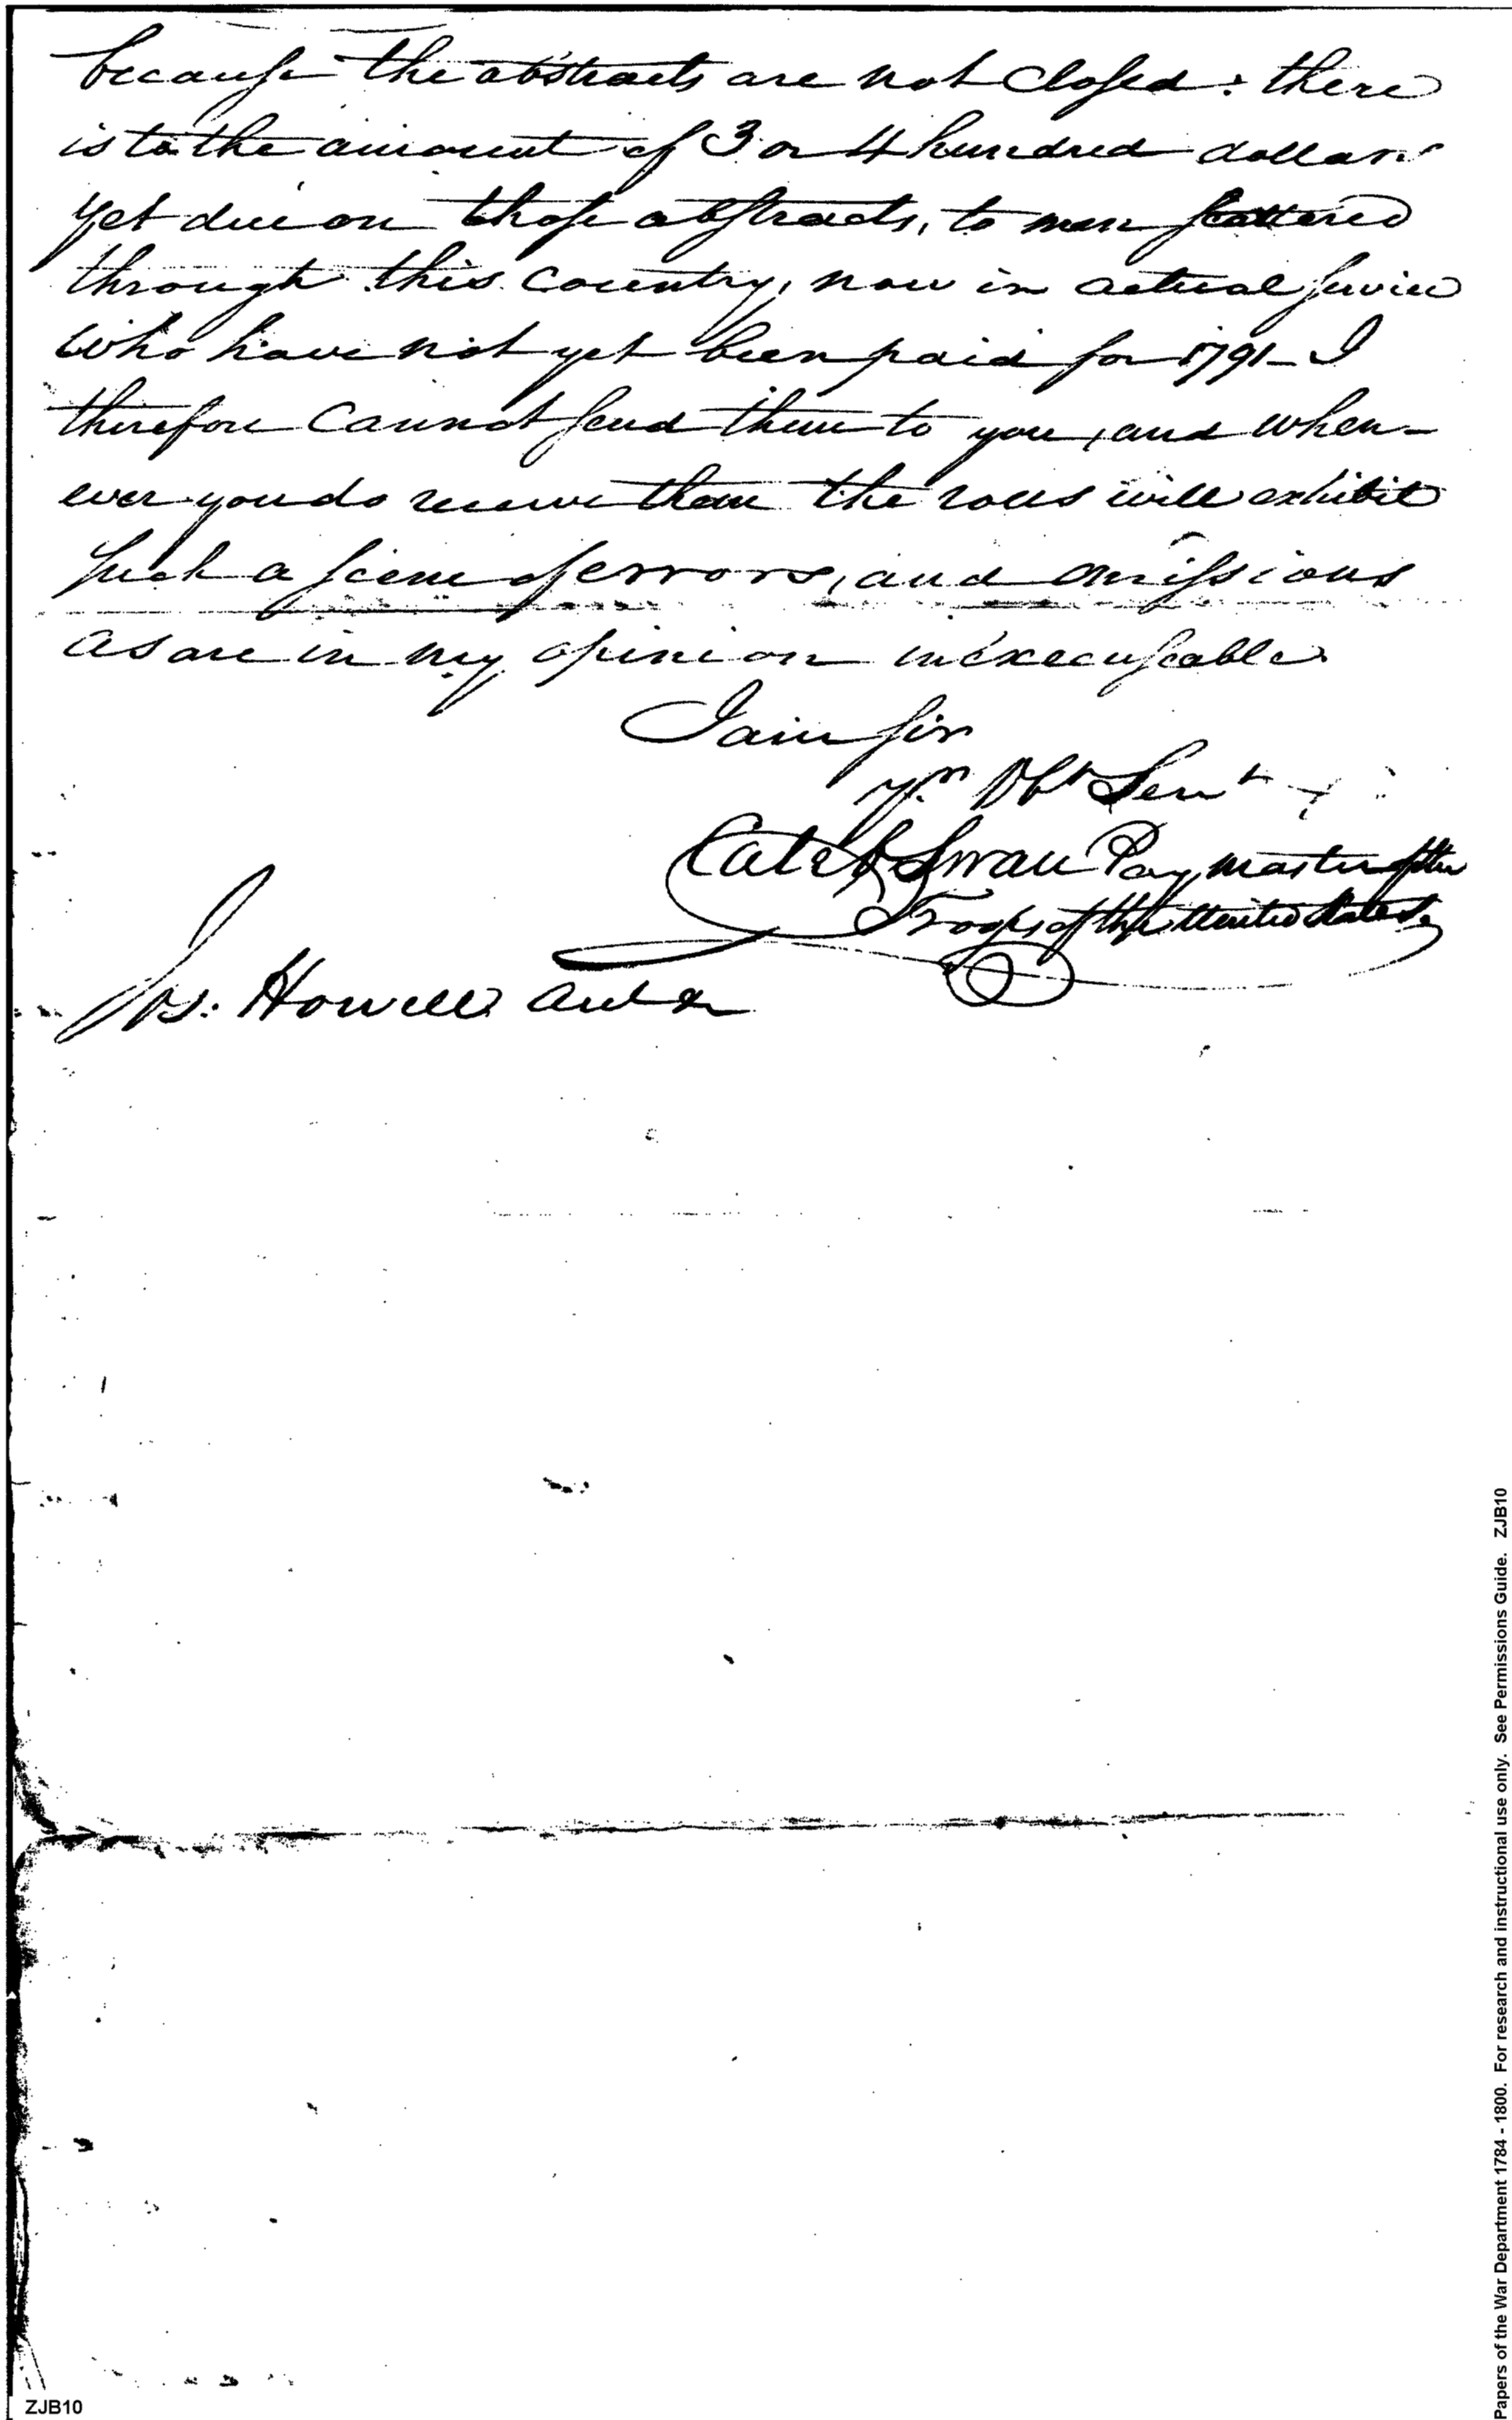 because the abstracts are not Closed: there
is to the amount of 3 or 4 hundred dollars
yet due on those abstracts, to men scattered
through this Country, now in actual service
who have not yet been paid for 1791 - I
therefore Cannot send them to you, and when-
ever you do receive them the rolls will exhibit
such a scene of errors, and omissions
as are in my opinion inexecuseable
I am sir
yr Obt Servt
Caleb Swan Paymaster of the
Troops of the United States
Jos: Howell
ZJB10
Papers of the War Department 1784 - 1800. For research and instructional use only. See Permissions Guide. ZJB10